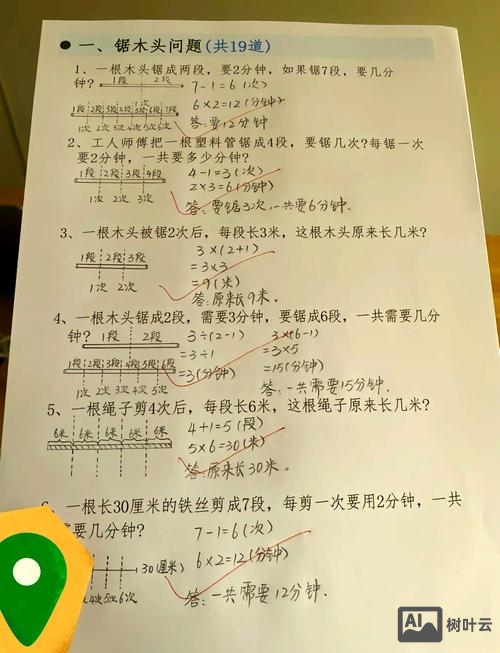 一、锯木头问题(共19道)
1、一根木头锯成两段，要2分钟，如果锯7段，要几分
钟?
1段 2段
1次
7-1=6(次)
1段 2段 3段 4段 5段 6段 7段
6×2=12(分钟)
1次 2次 3次 4次 5次 6次
答:要12分钟
2、工人师傅把一根塑料管锯成4段，要锯几次?每锯一次
要2分钟，一共要多少分钟?
1段 2段 3段 4段
4-1=3(次)
2×3=6(分钟)
1次 2次 3次
答:要锯3次,一共要6分钟.
3、一根木头被锯2次后，每段长3米，这根木头原来长几米?
3×(2+1)
1段 2段 3段
=3×3
=9(米)
1次 2次
答:原来长9米.
4、一根木头锯成2段，需要3分钟，要锯成6段，一共需要几分
钟?
1段 2段
3÷(2-1) 3×(6-1)
=3÷1 =3×5
1段 2段 3段 4段 5段 6段
=3(分钟) =15(分钟)
1次 2次 3次 4次 5次
答:一共需要15分钟.
5、一根绳子剪4次后，每段长6米，这根绳子原来长几米?
6米 6米 6米 6米 6米
4+1=5(段)
5×6=30(米)
答:原来长30米。
一根长30厘米的铁丝剪成7段，每剪一次要用2分钟，一共
要几分钟?
7-1=6(次)
30(厘米)
6×2=12(分钟)
4次 5次 6次
答:一共需要12分钟.
AI
树叶云